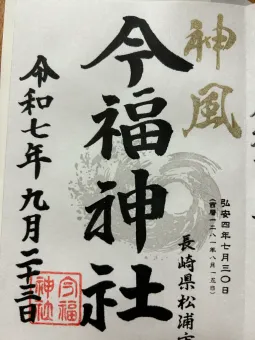 神風
弘安四年七月三〇日
(西暦一二八一年八月一五日)
長崎県松浦市
今福神社
令和七年九月二十三日
今福
神社